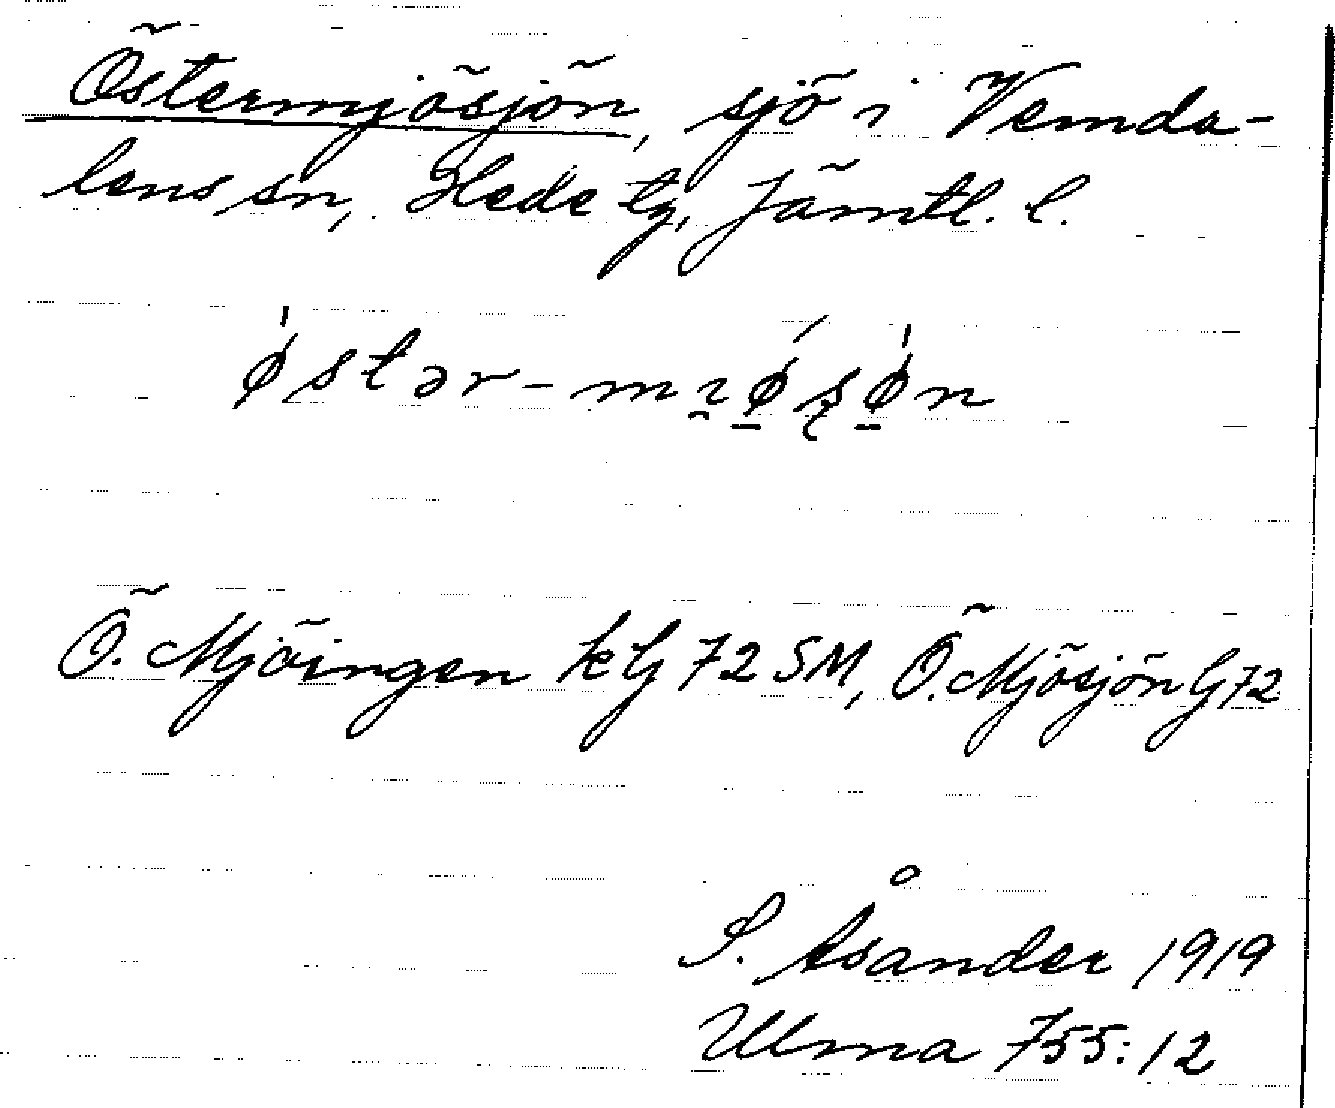 Östermjösjön, sjö i Vemda-
lens sn, Hede tg, Jämtl. l.
ǿstər-mı̯ǿ̲ʂǿ̲n
Ö. Mjöingen kG 72 SM, Ö. Mjösjön G 72
S. Åsander 1919
Ulma 755:12